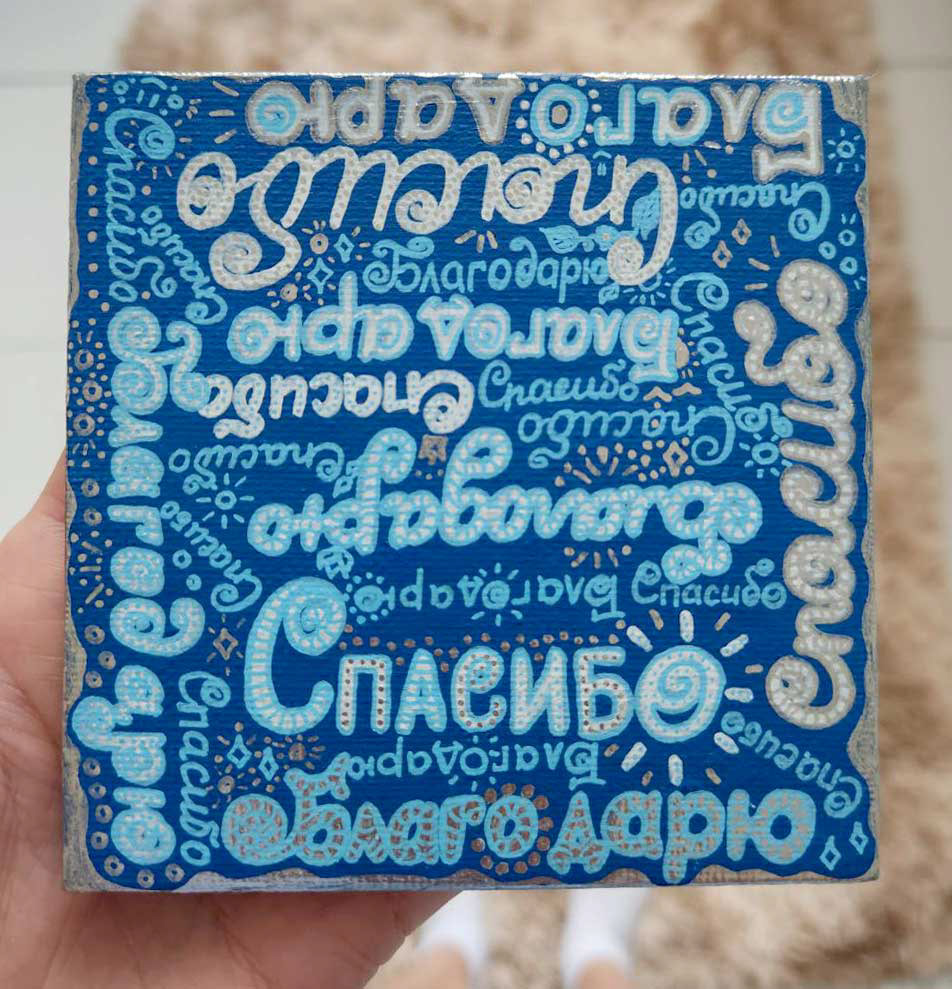 Благодарю
Спасибо
Спасибо
Спасибо
Спасибо
Спасибо
Благодарю
Благодарю
Спасибо
Спасибо
Спасибо
Спасибо
Спасибо
Спасибо
Благодарю
Спасибо
Благодарю
Спасибо
Благодарю
Спасибо
Спасибо
Спасибо
Благодарю
Спасибо
Спасибо
Благодарю